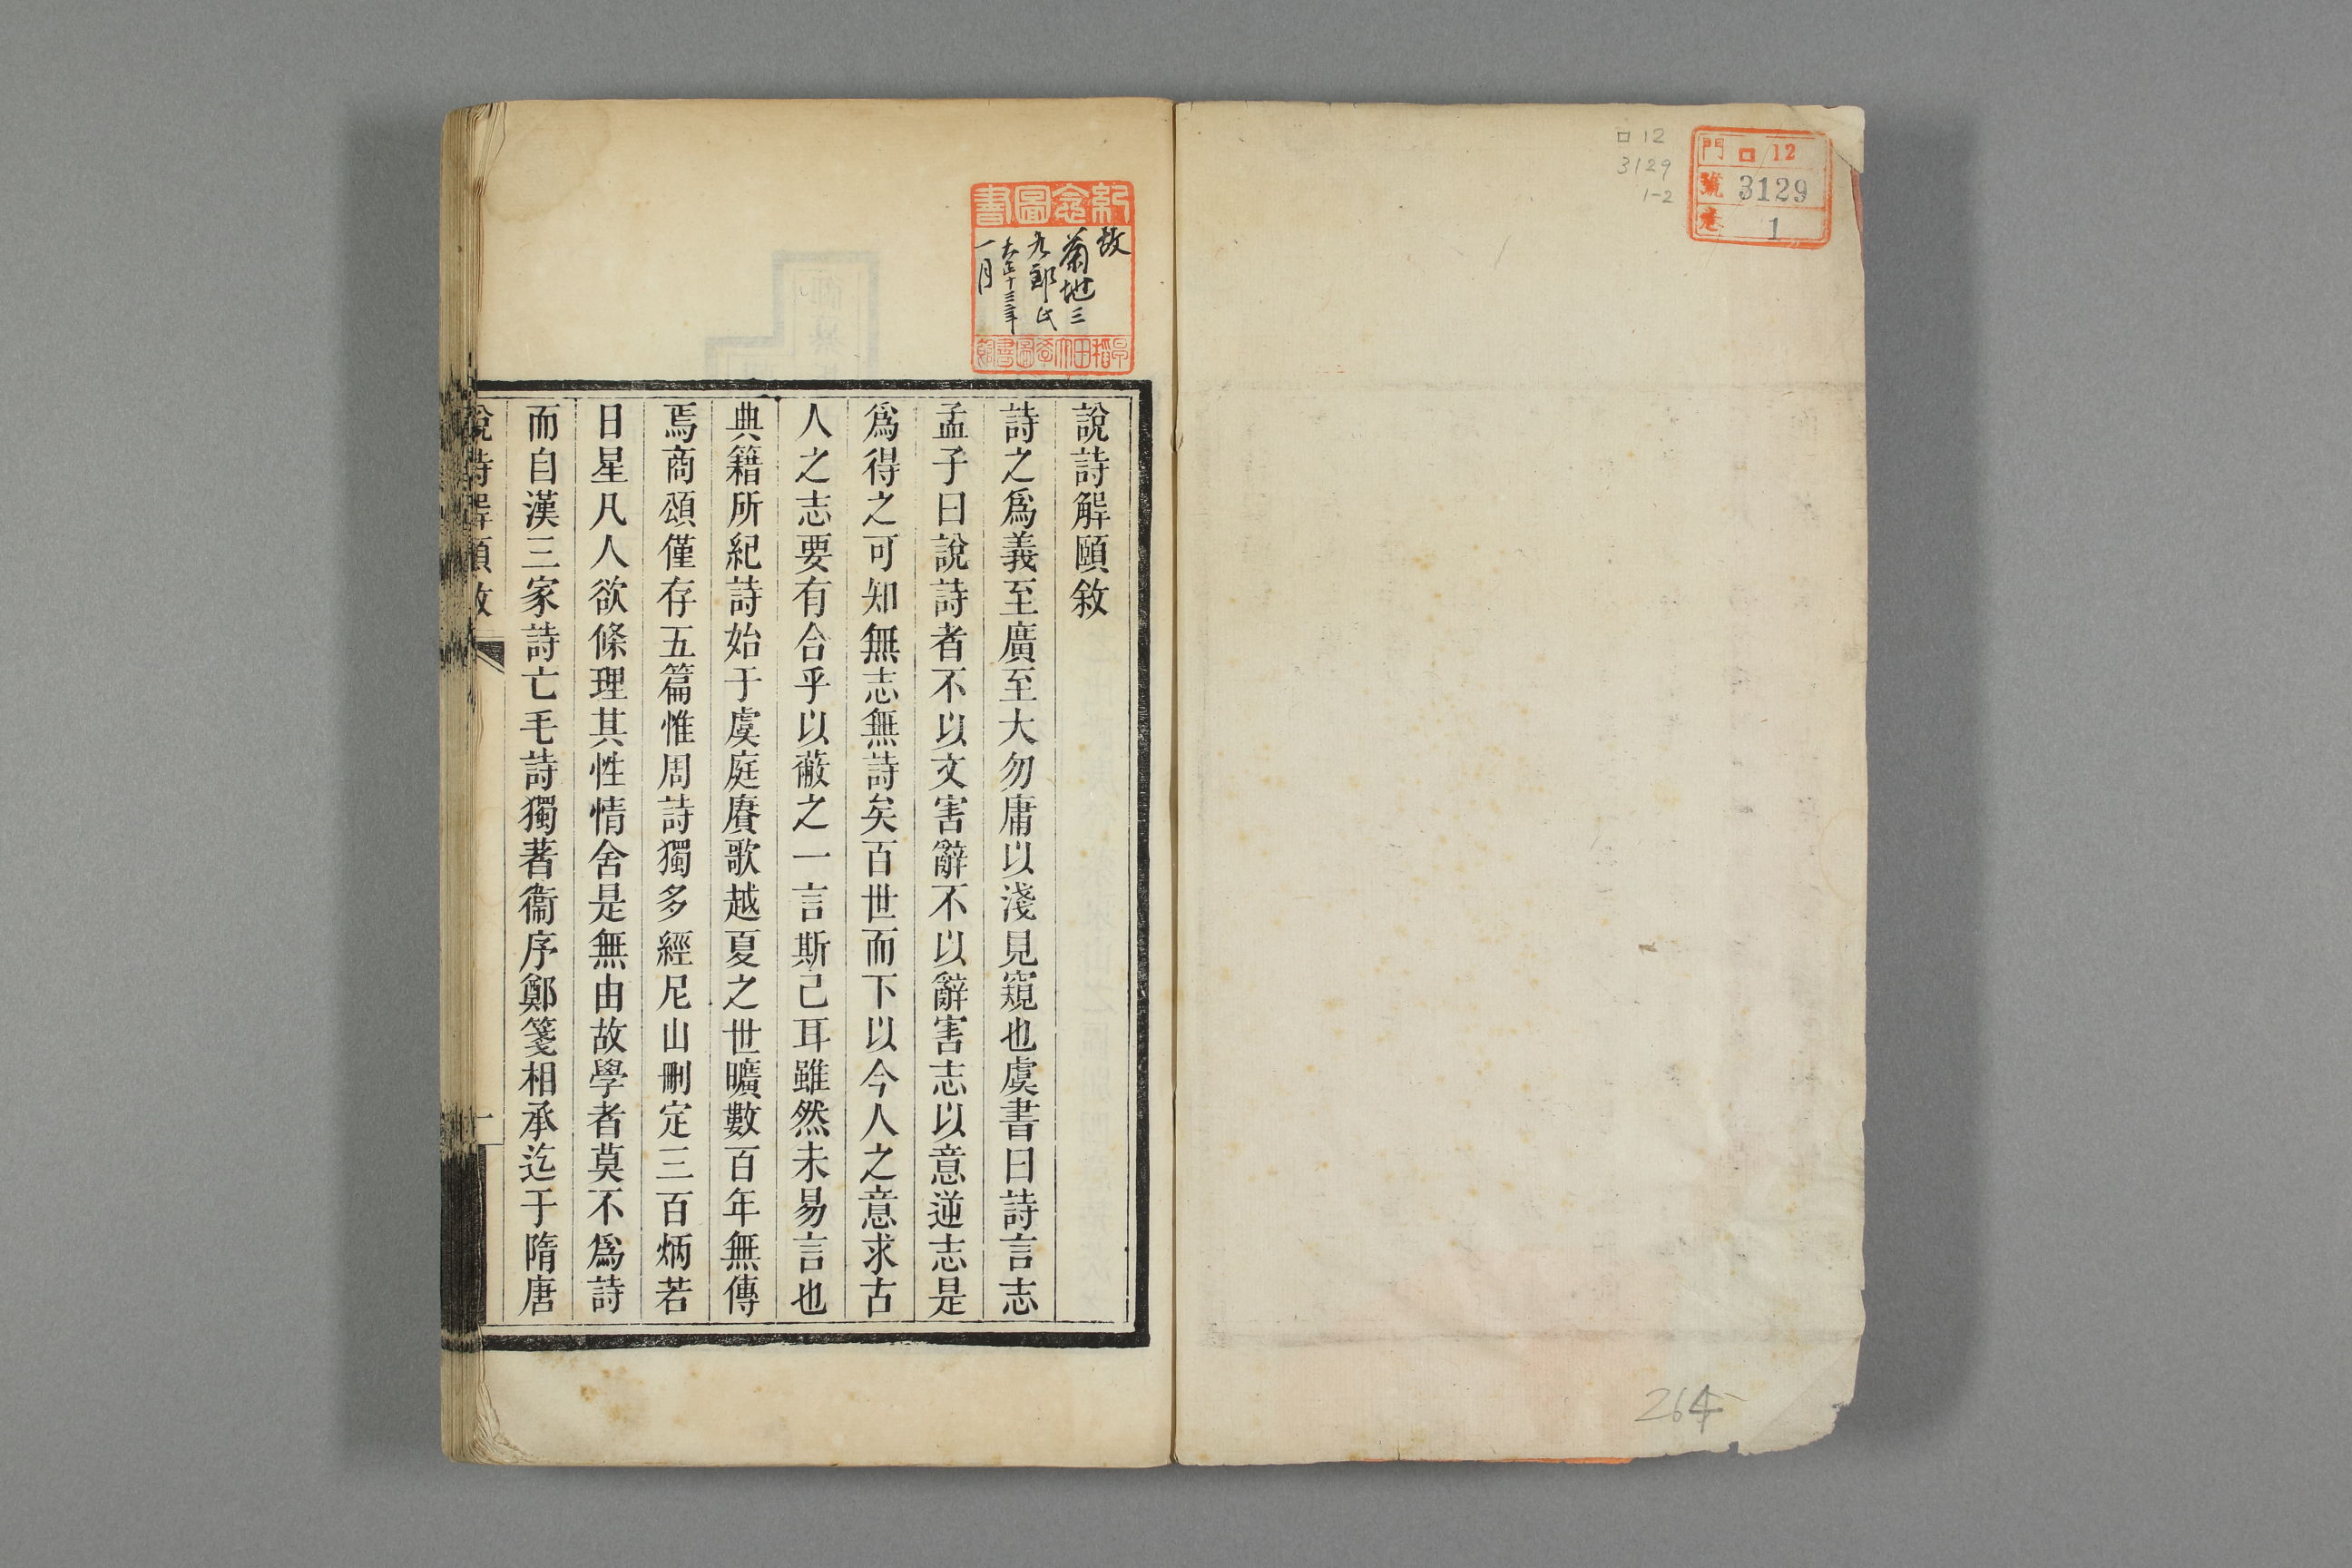 門 口 12
號 3129
卷 1
口 12
3129
1-2
264
紀念圖書
故
菊地三
九郎氏
大正十三年
一月
說詩解頤敘
詩之爲義至廣至大勿庸以淺見窺也虞書曰詩言志
孟子曰說詩者不以文害辭不以辭害志以意逆志是
爲得之可知無志無詩矣百世而下以今人之意求古
人之志要有合乎以蔽之一言斯己耳雖然未易言也
典籍所紀詩始于虞庭賡歌越夏之世曠數百年無傳
焉商頌僅存五篇惟周詩獨多經尼山刪定三百炳若
日星凡人欲條理其性情舍是無由故學者莫不爲詩
而自漢三家詩亡毛詩獨著衞序鄭箋相承迄于隋唐
說詩解頤敘
一